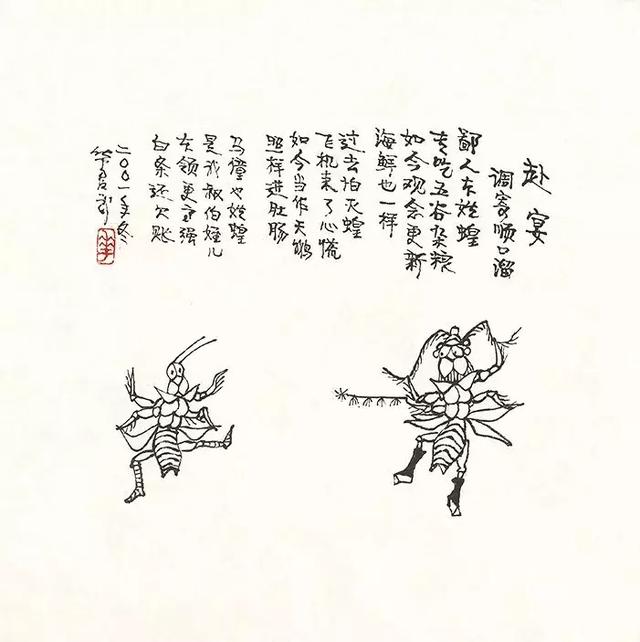 赴宴
调寄顺口溜
鄙人本姓蝗
专吃五谷杂粮
如今观念更新
海鲜也一样
过去怕灭蝗
飞机来了心慌
如今当作天鹅
照样进肚肠
也姓蝗
是我叔伯侄儿
本领更高强
白条还欠账
二〇〇一年冬
华君武